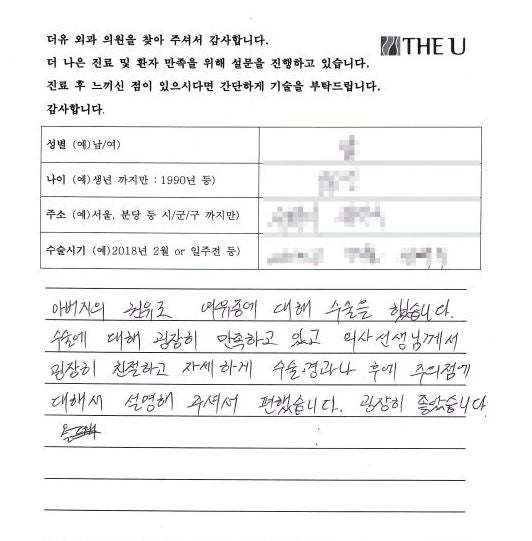 더유 외과 의원을 찾아 주셔서 감사합니다.
THE U
더 나은 진료 및 환자 만족을 위해 설문을 진행하고 있습니다.
진료 후 느끼신 점이 있으시다면 간단하게 기술을 부탁드립니다.
감사합니다.
성별 (예)남/여)
나이 (예)생년 까지만 : 1990년 등)
주소 (예)서울, 분당 등 시/군/구 까지만)
수술시기 (예)2018년 2월 or 일주전 등)
아버지의 권유로 여유증에 대해 수술을 했습니다.
수술에 대해 굉장히 만족하고 있고 의사선생님께서
굉장히 친절하고 자세하게 수술경과나 후에 주의점에
대해서 설명해 주셔서 편했습니다. 굉장히 좋았습니다